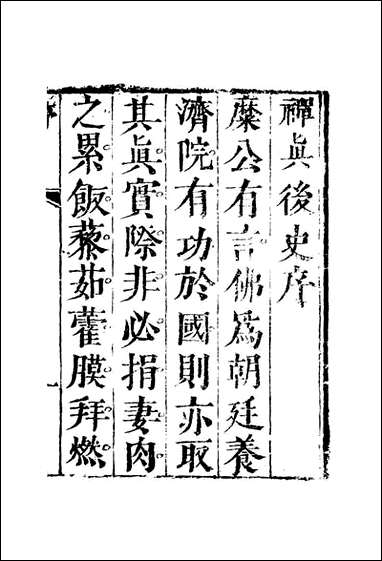 禪眞後史序
糜公有言佛爲朝廷養
濟院有功於國則亦取
其眞實際非必捐妻肉
之累飯藜茹藿膜拜燃